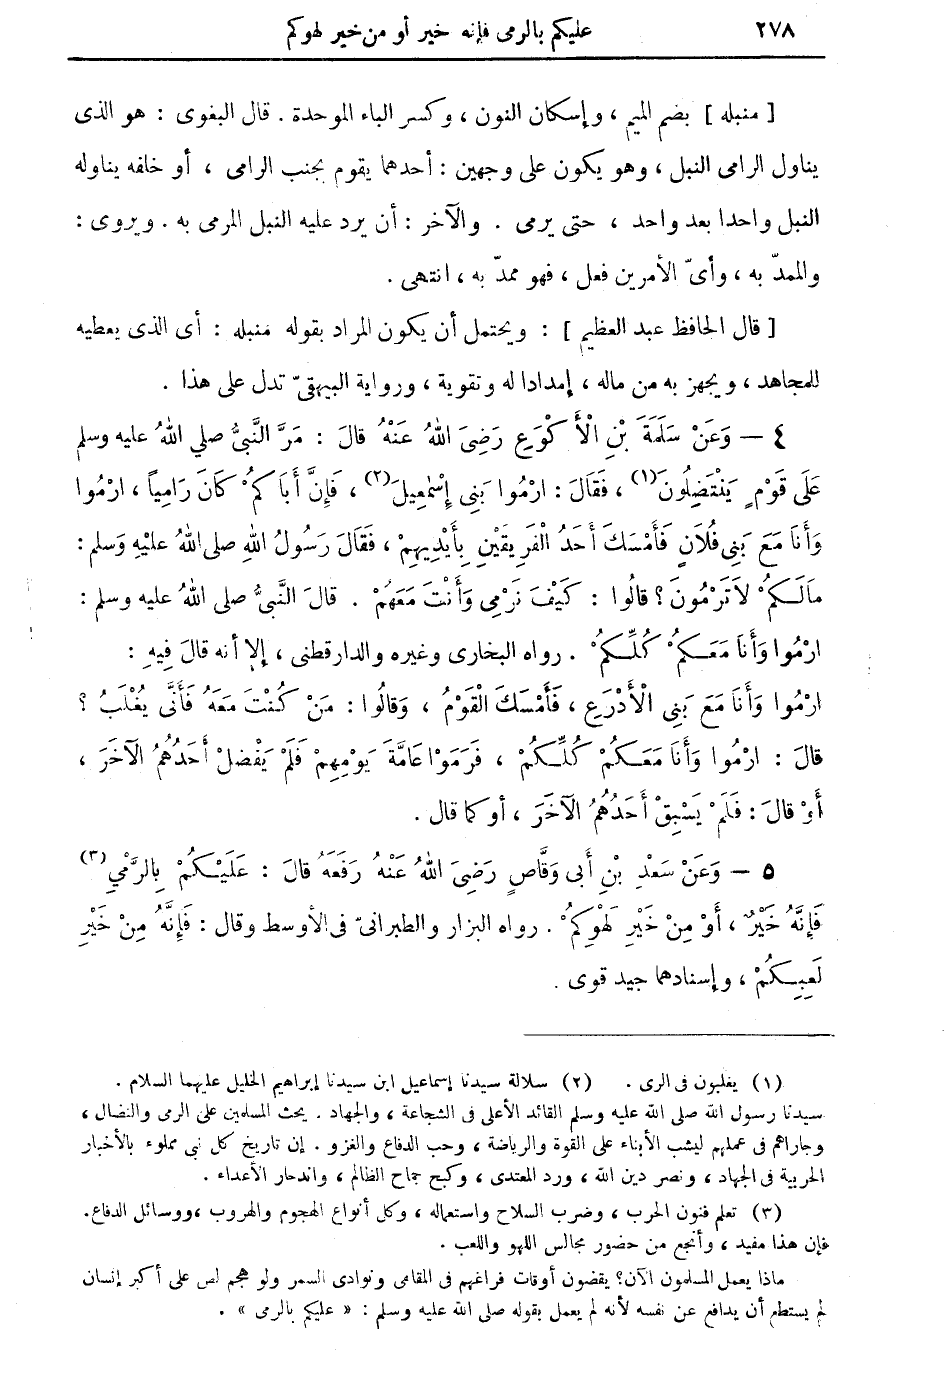 ٢٧٨ عليكم بالرمى فإنه خير أو من خير لهوكم
[ منبله ] بضم الميم ، وإسكان النون ، وكسر الباء الموحدة . قال البغوى : هو الذى
يناول الرامى النبل ، وهو يكون على وجهين : أحدهما يقوم بجنب الرامى ، أو خلفه يناوله
النبل واحدا بعد واحد ، حتى يرمى . والآخر : أن يرد عليه النبل المرمى به . ويروى :
والممدّ به ، وأىّ الأمرين فعل ، فهو ممدّ به ، انتهى .
[ قال الحافظ عبد العظيم ] : ويحتمل أن يكون المراد بقوله منبله : أى الذى يعطيه
للمجاهد ، ويجهز به من ماله ، إمدادا له وتقوية ، ورواية البيهقىّ تدل على هذا .
٤ — وَعَنْ سَلَمَةَ بْنِ الْأَكْوَعِ رَضِىَ اللهُ عَنْهُ قالَ : مَرَّ النَّبِىُّ صلى اللهُ عليه وسلم
عَلَى قَوْمٍ يَنْتَضِلُونَ(١) ، فَقَالَ : ارْمُوا بَنِى إِسْمٰعِيلَ(٢) ، فَإِنَّ أَبَاكمُ ْ كَانَ رَامِياً ، ارْمُوا
وَأَنَا مَعَ بَنِى فُلَانٍ فَأَمْسَكَ أَحَدُ الْفَرِيقَيْنِ بِأَيْدِيهِمْ ، فَقَالَ رَسُولُ اللهِ صلى اللهُ عليْهِ وَسلم :
مَالَكمُ ْ لاَتَرْمُونَ ؟ قالُوا : كَيْفَ نَرْمِى وَأَنْتَ مَعَهُمْ . قالَ النَّبىُّ صلى اللهُ عليه وسلم :
ارْمُوا وَأَنَا مَعَكمُ ْ كُلِّكمُ ْ . رواه البخارى وغيره والدارقطنى ، إلا أنه قالَ فِيهِ :
ارْمُوا وَأَنَا مَعَ بَنِى الْأَدْرَعِ ، فَأَمْسَكَ الْقَوْمُ ، وَقالُوا : مَنْ كُنْتَ مَعَهُ فَأَنَّى يُغْلَبُ ؟
قالَ : ارْمُوا وَأَنَا مَعَكُمْ كُلِّكُمْ ، فَرَمَوْا عَامَّةَ يَوْمِهِمْ فَلَمْ يَفْضلْ أَحَدُهُمُ الآخَرَ ،
أَوْ قالَ : فَلَمْ يَسْبِقْ أَحَدُهُمُ الآخَرَ ، أو كما قال .
٥ — وَعَنْ سَعْدِ بْنِ أَبى وَقَّاصٍ رَضِىَ اللهُ عَنْهُ رَفَعَهُ قالَ : عَلَيْكُمْ بِالرَّمْىِ(٣)
فَإِنَّهُ خَيْرٌ ، أَوْ مِنْ خَيْرِ لَهْوِكمُ ْ . رواه البزار والطبرانىّ فى الأوسط وقال : فَإِنَّهُ مِنْ خَيْرِ
لَعِبِكُمْ ، وإسنادهما جيد قوى .
(١) يغلبون فى الرى . (٢) سلالة سيدنا إسماعيل ابن سيدنا إبراهيم الخليل عليهما السلام .
سيدنا رسول الله صلى الله عليه وسلم القائد الأعلى فى الشجاعة ، والجهاد . يحث المسلمين على الرمى والنضال ،
وجاراهم فى عملهم ليشب الأبناء على القوة والرياضة ، وحب الدفاع والغزو . إن تاريخ كل نبى مملوء بالأخبار
الحربية فى الجهاد ، ونصر دين الله ، ورد المعتدى ، وكبح جماح الظالم ، واندحار الأعداء .
(٣) تعلم فنون الحرب ، وضرب السلاح واستعماله ، وكل أنواع الهجوم والهروب ،ووسائل الدفاع.
فإن هذا مفيد ، وأنجع من حضور مجالس اللهو واللعب .
ماذا يعمل المسلمون الآن؟ يقضون أوقات فراغهم فى المقامى ونوادى السمر ولو هجم لص على أكبر إنسان
لم يستطع أن يدافع عن نفسه لأنه لم يعمل بقوله صلى الله عليه وسلم : « عليكم بالرمى » .